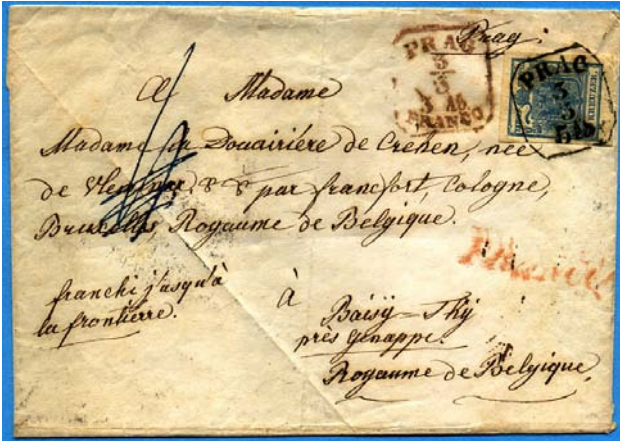 Prag.
PRAG
3
3
FRANCO
PRAG
3
3
KREUZER
A Madame
Madame la Douairière de Crehen, née
de Vleminex, & & par francfort, Cologne,
Bruxelles, Royaume de Belgique.
FRANCO
franchi j'usqu'à
la frontierre.
à
Baisÿ-Thÿ
près Genappe.
Royaume de Belgique,